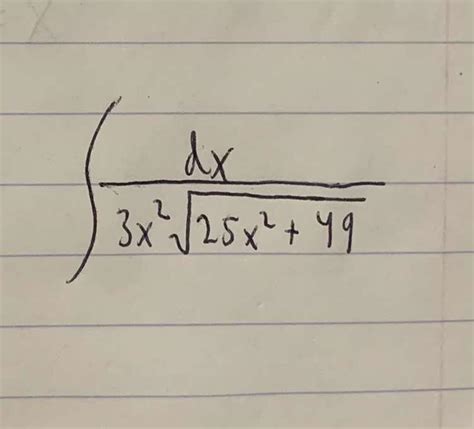 ∫ dx
3x² √25x² + 49